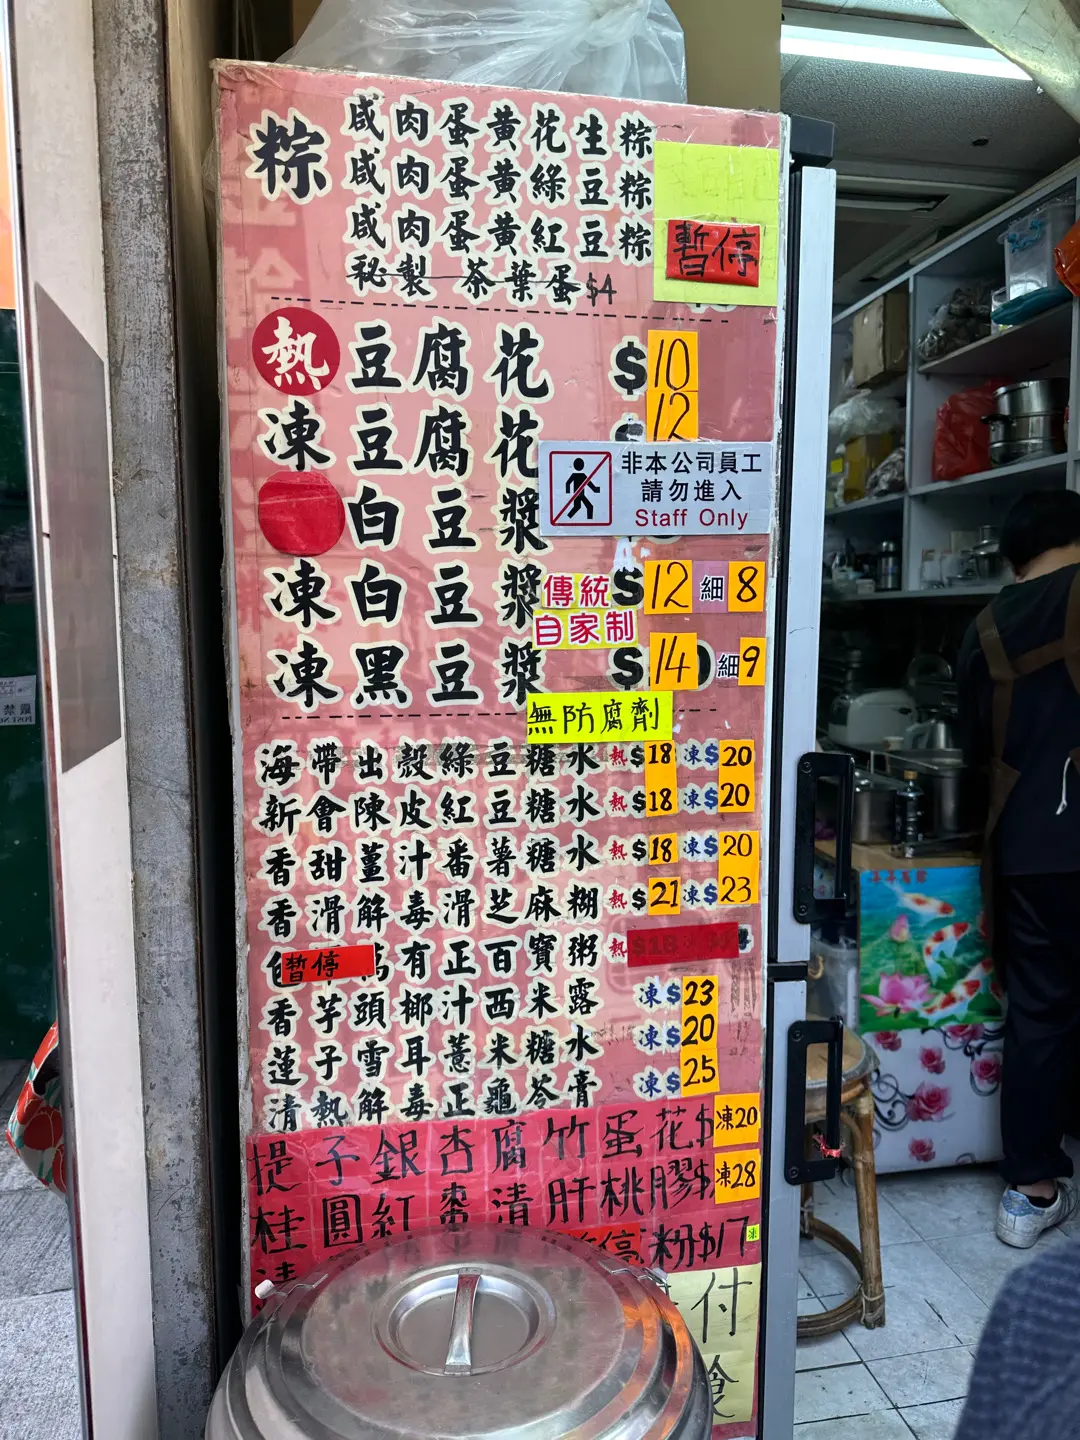 粽
咸肉蛋黃花生粽
咸肉蛋黃綠豆粽
咸肉蛋黃紅豆粽
暫停
秘製茶葉蛋$4
熱豆腐花 $10
凍豆腐花 $12
白豆漿
非本公司員工
請勿進入
Staff Only
凍白豆漿 $12 細8
傳統
自家制
凍黑豆漿 $14 細9
無防腐劑
海帶出殼綠豆糖水 熱$18 凍$20
新會陳皮紅豆糖水 熱$18 凍$20
香甜薑汁番薯糖水 熱$18 凍$20
香滑解毒滑芝麻糊 熱$21 凍$23
暫停 有正百寶粥 熱$18
香芋頭椰汁西米露 凍$23
蓮子雪耳薏米糖水 凍$20
清熱解毒正龜苓膏 凍$25
提子銀杏腐竹蛋花$凍20
桂圓紅棗清肝桃膠$凍28
清 停粉$17凍
付